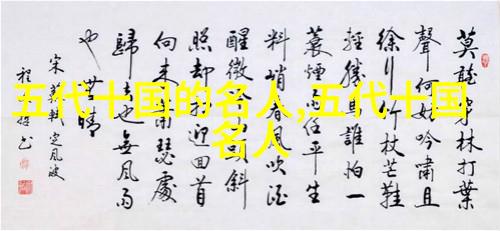 五代十国的名人,五代十国
名人
莫聽穿林打葉
聲何妨吟嘯且
徐行竹杖芒鞋
輕勝馬誰怕一
蓑煙雨任平生
料峭春風吹酒
醒微 頭斜
照却 迎回首
向來蕭瑟處
歸去也無風雨
也無晴
宋蘇軾定風波
程 書